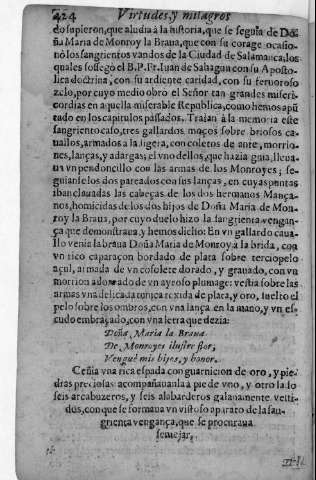 424 Virtudes, y milagros
do supieron, que aludia à la historia, que se seguia de Do-
ña Maria de Monroy la Braua, que con su corage ocasio-
nò los sangrientos vandos de la Ciudad de Salamãca, los
quales sossegò el B. P. Fr. Iuan de Sahagun con su Aposto-
lica doctrina, con su ardiente caridad, con su feruoroso
zelo, por cuyo medio obrò el Señor tan grandes miseri-
cordias en aquella miserable Republica, como hemos apũ
tado en los capitulos passados. Traian à la memoria este
sangriento caso, tres gallardos moços sobre briosos ca-
uallos, armados à la ligera, con coletos de ante, morrio-
nes, lanças, y adargas; el vno dellos, que hazia guia, lleua-
ua vn pendoncillo con las armas de los Monroyes; se-
guianle los dos pareados con sus lanças, en cuyas puntas
ivan clauadas las cabeças de los dos hermanos Mança-
nos, homicidas de los dos hijos de Doña Maria de Mon-
roy la Braua, por cuyo duelo hizo la sangrienta vengan-
ça que demonstraua, y hemos dicho: En vn gallardo caua-
llo venia la braua Doña Maria de Monroy à la brida, con
vn rico caparaçon bordado de plata sobre terciopelo
açul, armada de vn cosolete dorado, y grauado, con vn
morrion adornado de vn ayroso plumage: vestia sobre las
armas vna delicada tunica texida de plata, y oro, suelto el
pelo sobre los ombros, con vna lança en la mano, y vn es-
cudo embraçado, con vna letra que dezia:
Doña Maria la Braua
De Monroyes ilustre flor,
Venguè mis hijos, y honor.
Ceñia vna rica espada con guarnicion de oro, y pie-
dras preciosas: acompañauanla à pie de vno, y otro lado
seis arcabuzeros, y seis alabarderos galanamente vesti-
dos, con que se formaua vn vistoso aparato de la san-
grienta vengança, que se procuraua
semejar.